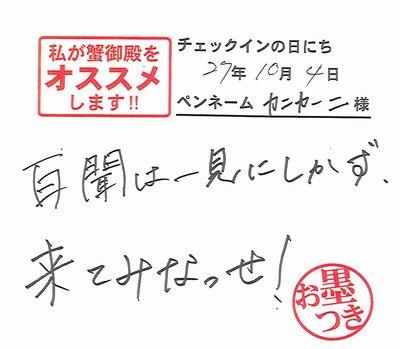 私が蟹御殿を
オススメ
します!!
チェックインの日にち
27年10月4日
ペンネーム カンカーニ 様
百聞は一見にしかず、
来てみなっせ!
お墨つき